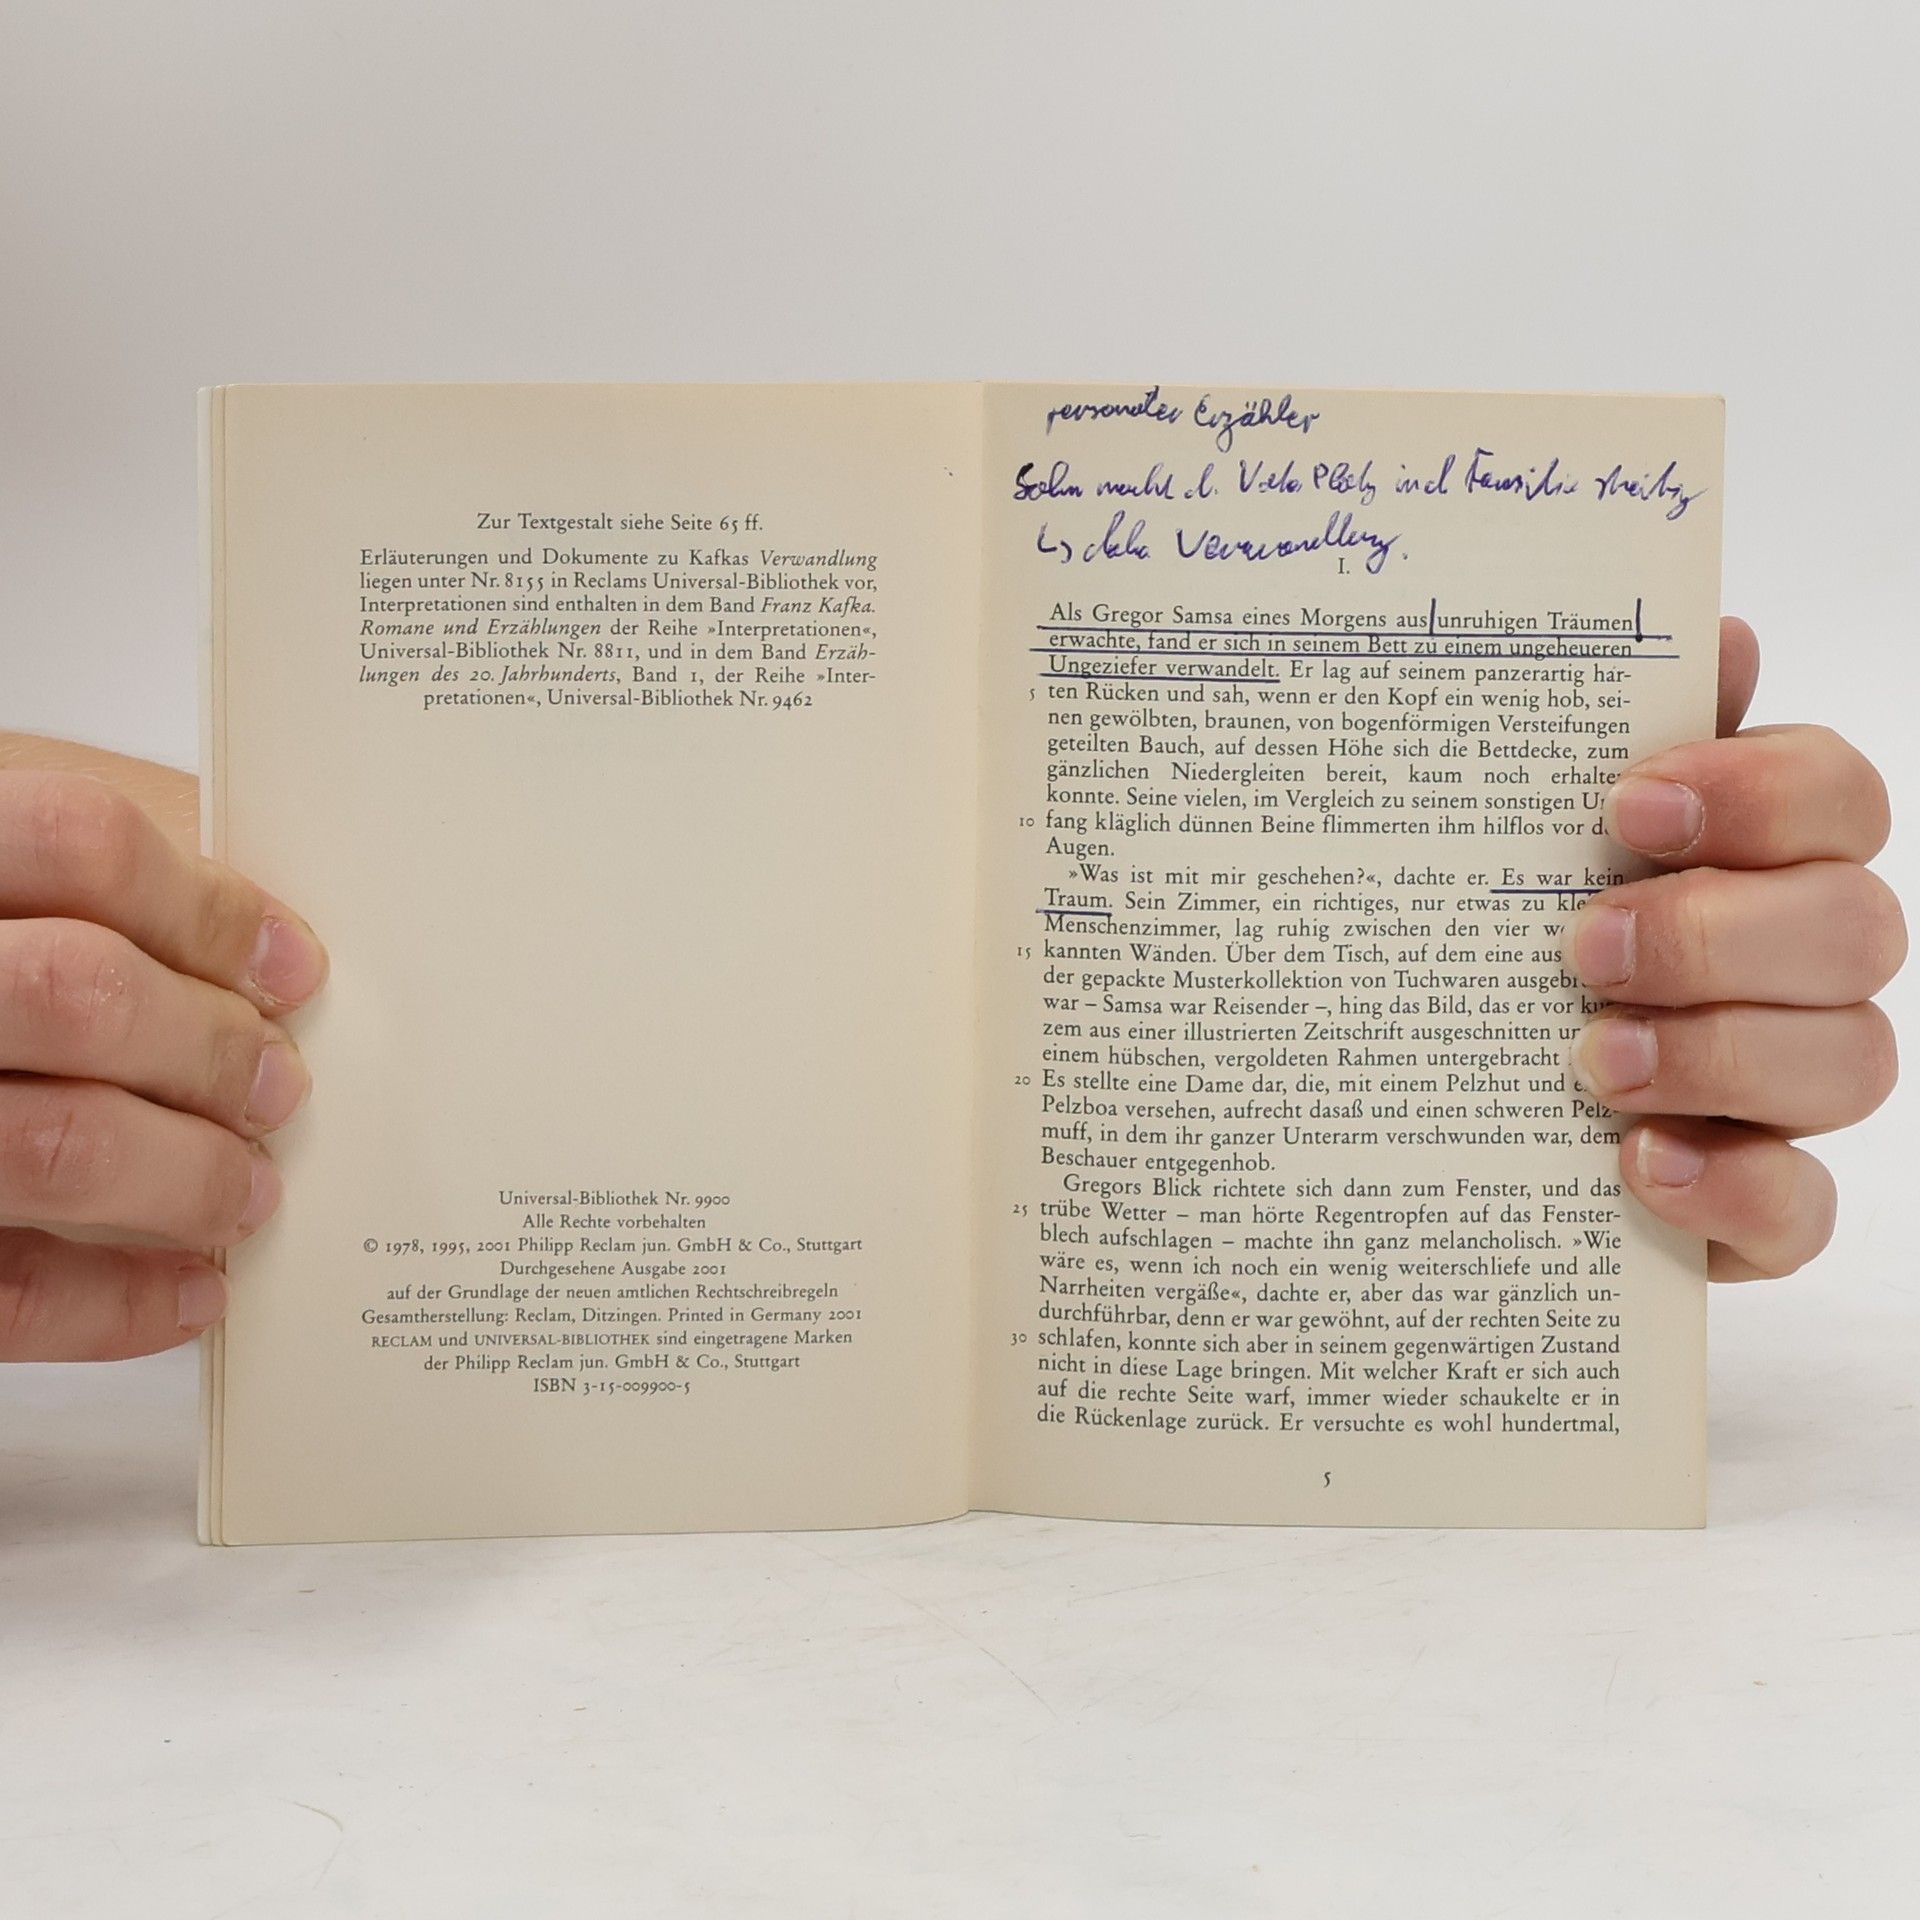 Zur Textgestalt siehe Seite 65 ff.
Erläuterungen und Dokumente zu Kafkas Verwandlung
liegen unter Nr. 8155 in Reclams Universal-Bibliothek vor,
Interpretationen sind enthalten in dem Band Franz Kafka.
Romane und Erzählungen der Reihe »Interpretationen«,
Universal-Bibliothek Nr. 8811, und in dem Band Erzäh-
lungen des 20. Jahrhunderts, Band 1, der Reihe »Inter-
pretationen«, Universal-Bibliothek Nr. 9462
Universal-Bibliothek Nr. 9900
Alle Rechte vorbehalten
© 1978, 1995, 2001 Philipp Reclam jun. GmbH & Co., Stuttgart
Durchgesehene Ausgabe 2001
auf der Grundlage der neuen amtlichen Rechtschreibregeln
Gesamtherstellung: Reclam, Ditzingen. Printed in Germany 2001
RECLAM und UNIVERSAL-BIBLIOTHEK sind eingetragene Marken
der Philipp Reclam jun. GmbH & Co., Stuttgart
ISBN 3-15-009900-5
personaler Erzähler
Sohn macht d. Vater Platz in d Familie streitig
↳ daher Verwandlung.
I.
Als Gregor Samsa eines Morgens aus unruhigen Träumen
erwachte, fand er sich in seinem Bett zu einem ungeheueren
Ungeziefer verwandelt. Er lag auf seinem panzerartig har-
5 ten Rücken und sah, wenn er den Kopf ein wenig hob, sei-
nen gewölbten, braunen, von bogenförmigen Versteifungen
geteilten Bauch, auf dessen Höhe sich die Bettdecke, zum
gänzlichen Niedergleiten bereit, kaum noch erhalte
konnte. Seine vielen, im Vergleich zu seinem sonstigen U
10 fang kläglich dünnen Beine flimmerten ihm hilflos vor d
Augen.
»Was ist mit mir geschehen?«, dachte er. Es war kein
Traum. Sein Zimmer, ein richtiges, nur etwas zu kle
Menschenzimmer, lag ruhig zwischen den vier w
15 kannten Wänden. Über dem Tisch, auf dem eine aus
der gepackte Musterkollektion von Tuchwaren ausgeb
war – Samsa war Reisender –, hing das Bild, das er vor kur-
zem aus einer illustrierten Zeitschrift ausgeschnitten un
einem hübschen, vergoldeten Rahmen untergebracht
20 Es stellte eine Dame dar, die, mit einem Pelzhut und e
Pelzboa versehen, aufrecht dasaß und einen schweren Pelz-
muff, in dem ihr ganzer Unterarm verschwunden war, dem
Beschauer entgegenhob.
Gregors Blick richtete sich dann zum Fenster, und das
25 trübe Wetter – man hörte Regentropfen auf das Fenster-
blech aufschlagen – machte ihn ganz melancholisch. »Wie
wäre es, wenn ich noch ein wenig weiterschliefe und alle
Narrheiten vergäße«, dachte er, aber das war gänzlich un-
durchführbar, denn er war gewöhnt, auf der rechten Seite zu
30 schlafen, konnte sich aber in seinem gegenwärtigen Zustand
nicht in diese Lage bringen. Mit welcher Kraft er sich auch
auf die rechte Seite warf, immer wieder schaukelte er in
die Rückenlage zurück. Er versuchte es wohl hundertmal,
5